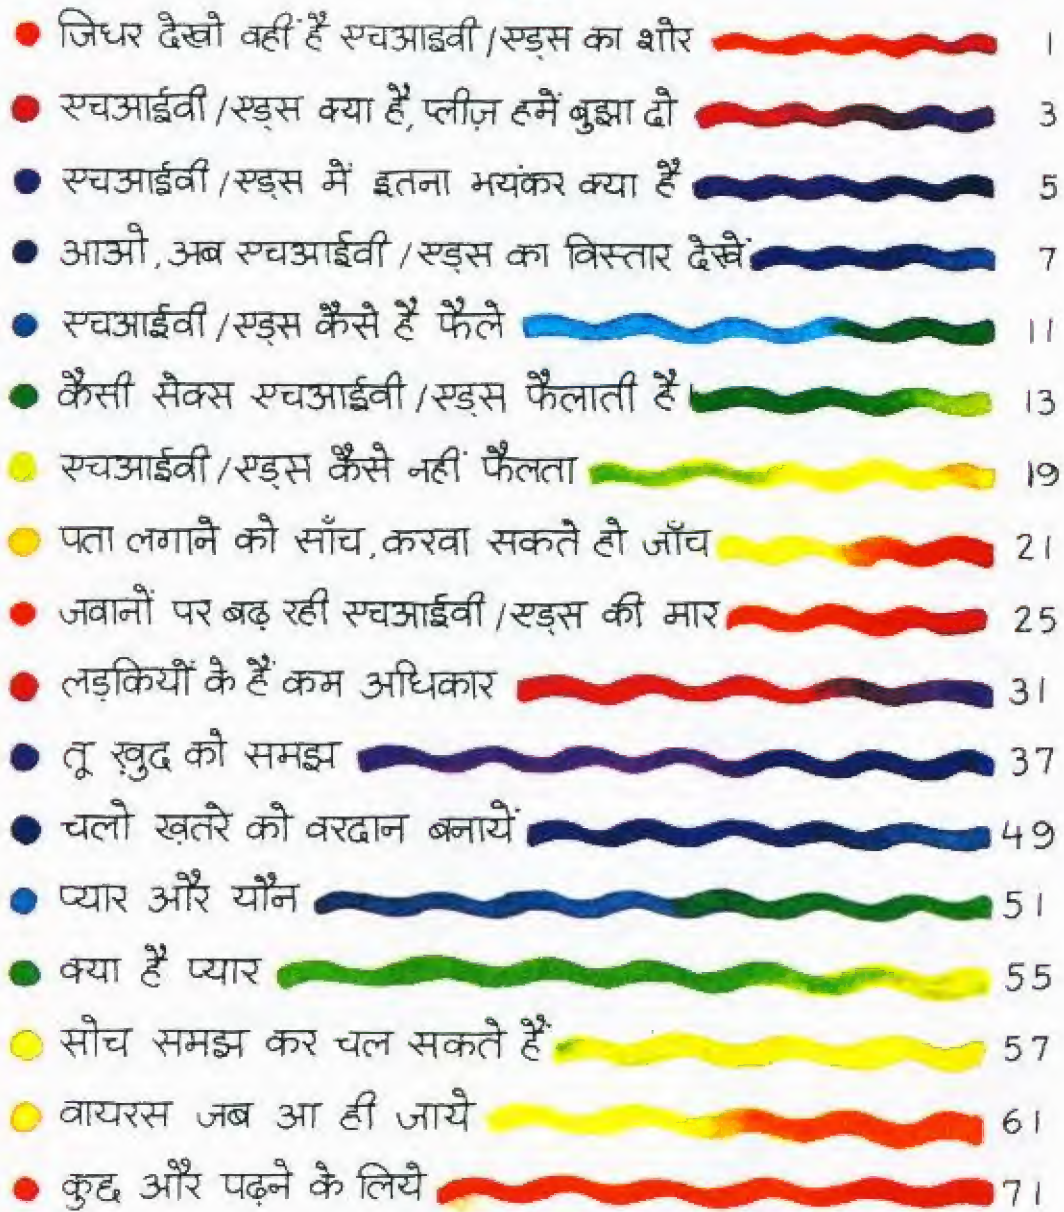 जिधर देखो वहीं है एचआइवी/एड्स का शोर 1
एचआईवी/एड्स क्या है, प्लीज़ हमें बुझा दो 3
एचआईवी/एड्स में इतना भयंकर क्या है 5
आओ, अब एचआईवी/एड्स का विस्तार देखें 7
एचआईवी/एड्स कैसे है फैले 11
कैसी सेक्स एचआईवी/एड्स फैलाती है 13
एचआईवी/एड्स कैसे नहीं फैलता 19
पता लगाने को साँच, करवा सकते हो जाँच 21
जवानों पर बढ़ रही एचआईवी/एड्स की मार 25
लड़कियों के हैं कम अधिकार 31
तू ख़ुद को समझ 37
चलो ख़तरे को वरदान बनायें 49
प्यार और यौन 51
क्या है प्यार 55
सोच समझ कर चल सकते हैं 57
वायरस जब आ ही जाये 61
कुछ और पढ़ने के लिये 71